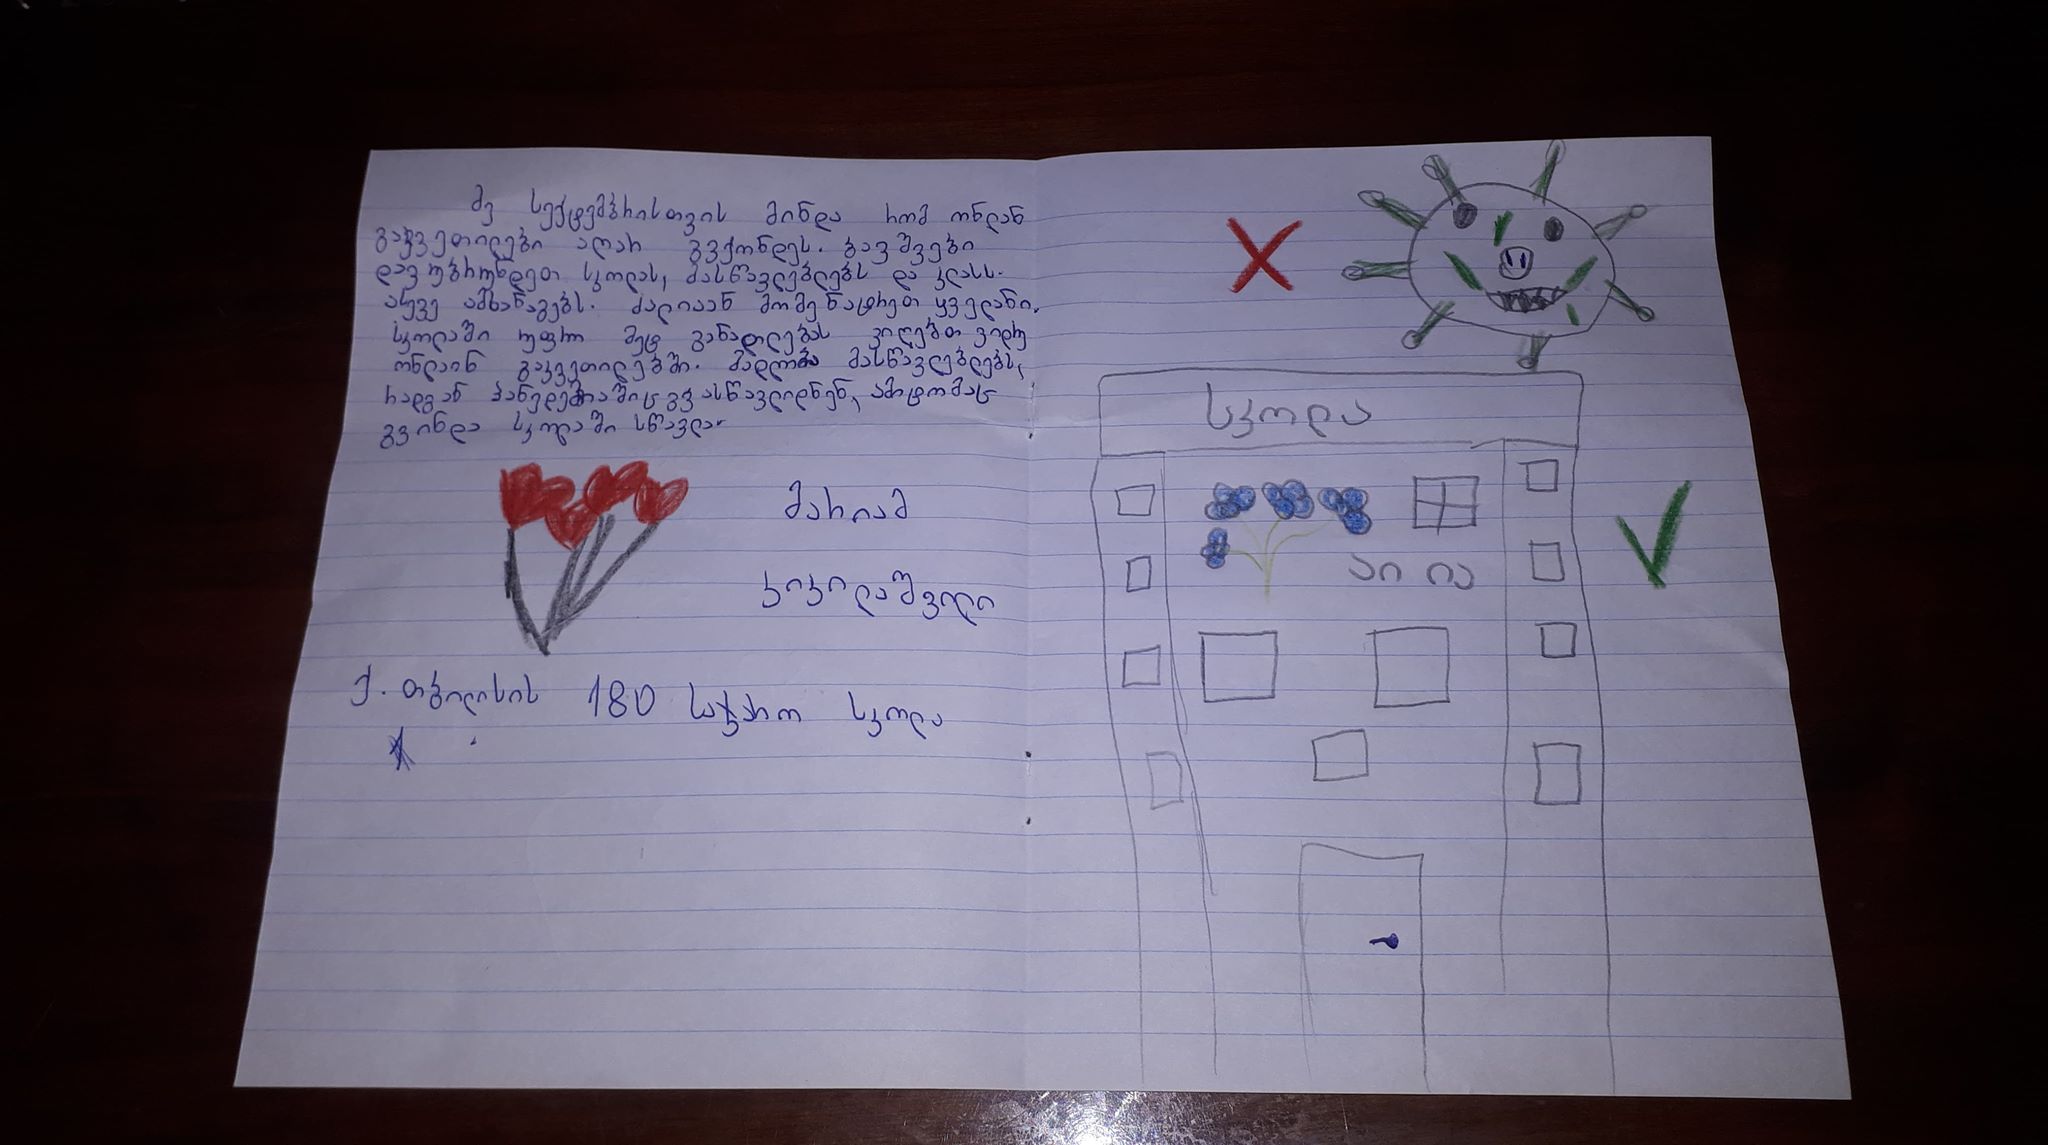 მე სექტემბრისთვის მინდა რომ ონლან
გაკვეთილები აღარ გვქონდეს. ბავშვები
დავუბრუნდეთ სკოლას, მასწავლებლებს და კლასს.
ასევე ამხანაგებს. ძალიაან მომენატრეთ ყველანი.
სკოლაში უფრო მეტ განათლებას ვიღებთ ვიდრე
ონლაინ გაკვეთილებში. მადლობა მასწავლებლებს,
რადგან პანდემიაშიც გვასწავლიდნენ, ამიტომაც
გვინდა სკოლაში სწავლა.
მარიამ
კიკილაშვილი
ქ. თბილისის 180 საჯარო სკოლა
სკოლა
აი ია